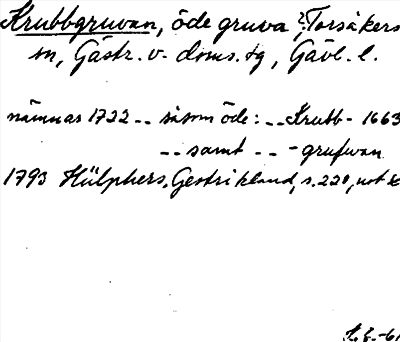 Krubbgruvan, öde gruva, ?Torsåkers
sn, Gästr. v. doms. tg, Gävl. l.
nämnas 1722 -- såsom öde: -- Krubb- 1663
-- samt -- - grufwan
1793 Hülphers, Gestrikland, s. 220, not